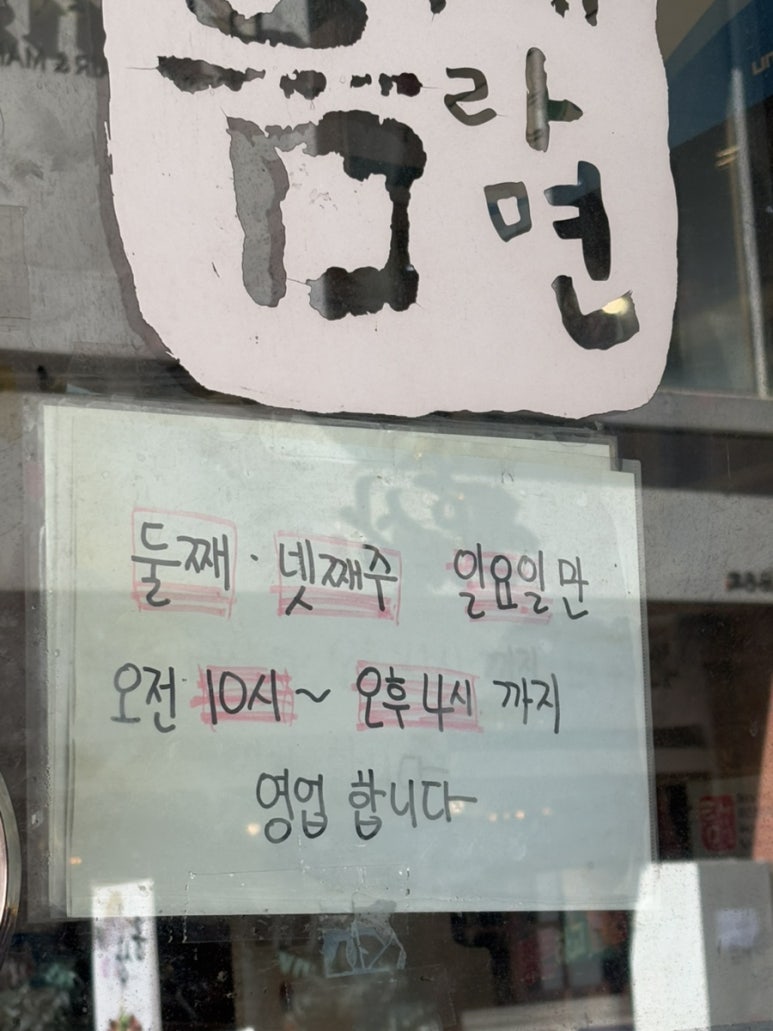 라
면
둘째 · 넷째주 일요일만
오전 10시~ 오후 4시 까지
영업 합니다